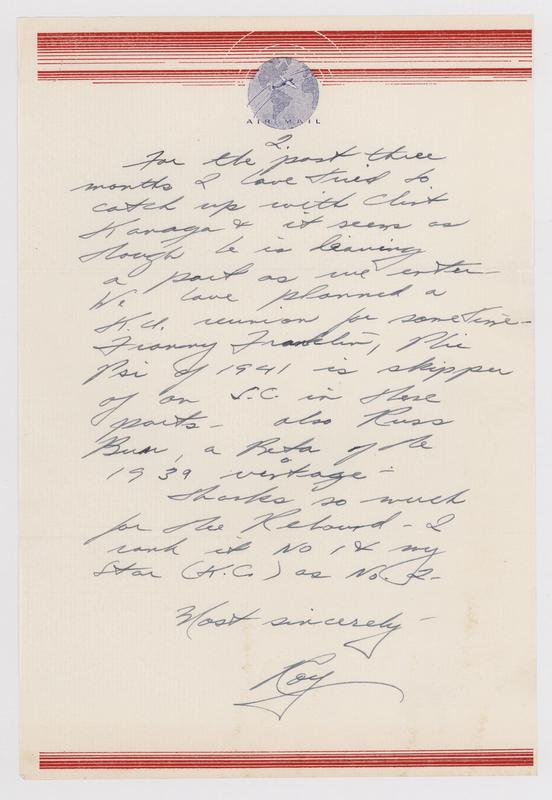 AIR MAIL
2.
For the past three
months I have tried to
catch up with Clint
Kanaga & it seems as
though he is leaving
a port as we enter—
We have planned a
K.U. reunion for sometime—
Franny Franklin, Phi
Psi of 1941 is skipper
of an S.C. in these
parts — also Russ
, a Beta of the
1939 vintage —
Thanks so much
for the Rebound — I
rank it No 1 & my
Star (K.C.) as No. 2—
Most sincerely —
Roy